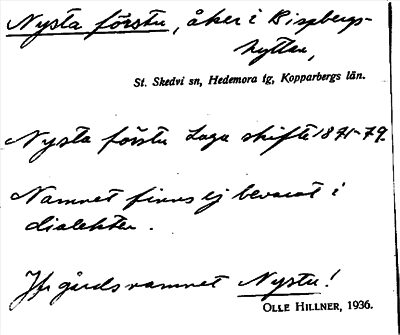 Nysta förstu, åker i Bispbergs-
hyttan,
St. Skedvi sn, Hedemora tg, Kopparbergs län.
Nysta förstu Laga skifte 1871-79.
Namnet finns ej bevarat i
dialekten.
Jfr gårdsnamnet Nystu!
OLLE HILLNER, 1936.